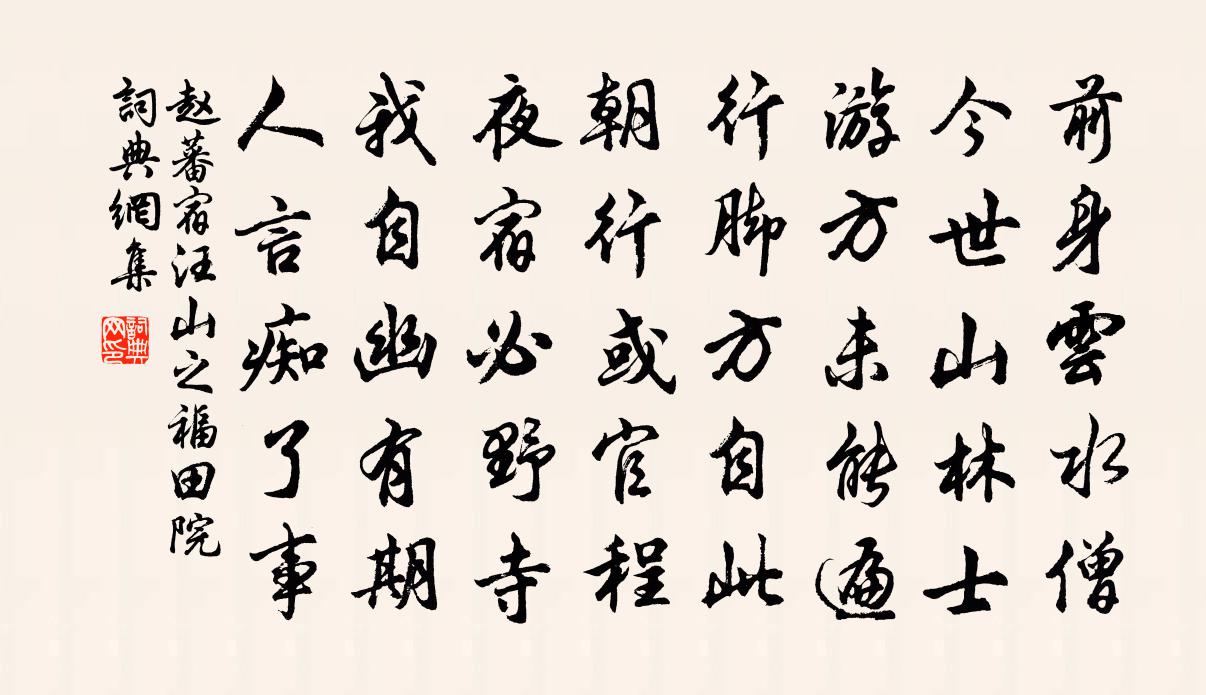 前身雲水僧
今世山林士
游方未能遍
行脚方自此
朝行或官程
夜宿必野寺
我自幽有期
人言痴了事
赵蕃宿汪山之福田院
詞典網集
詞典网印